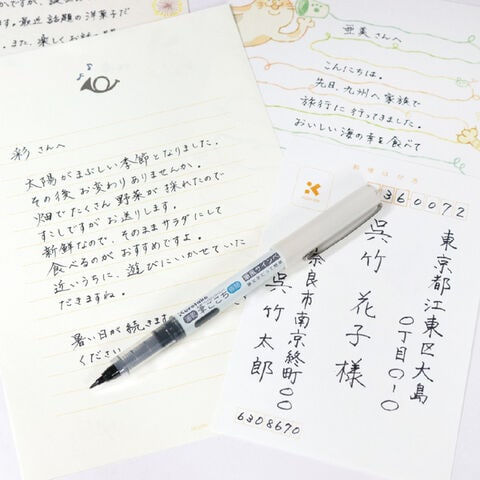 す。最近話題の洋菓子だ
彩さんへ
太陽がまぶしい季節となりました。
その後お変わりありませんか。
畑でたくさん野菜が採れたので
すこしですがお送りします。
新鮮なので、そのままサラダにして
食べるのがおすすめですよ。
近いうちに、遊びにいかせていた
だきますね。
暑い日が続きます
ください
亜美さんへ
こんにちは。
先日、九州へ家族で
旅行に行ってきました。
おいしい海の幸を食べて
郵便はがき
360072
東京都江東区大島
〇丁目〇ー〇
呉竹 花子様
奈良市南京終町〇〇
呉竹 太郎
6308670
Kuretake
筆ごこち